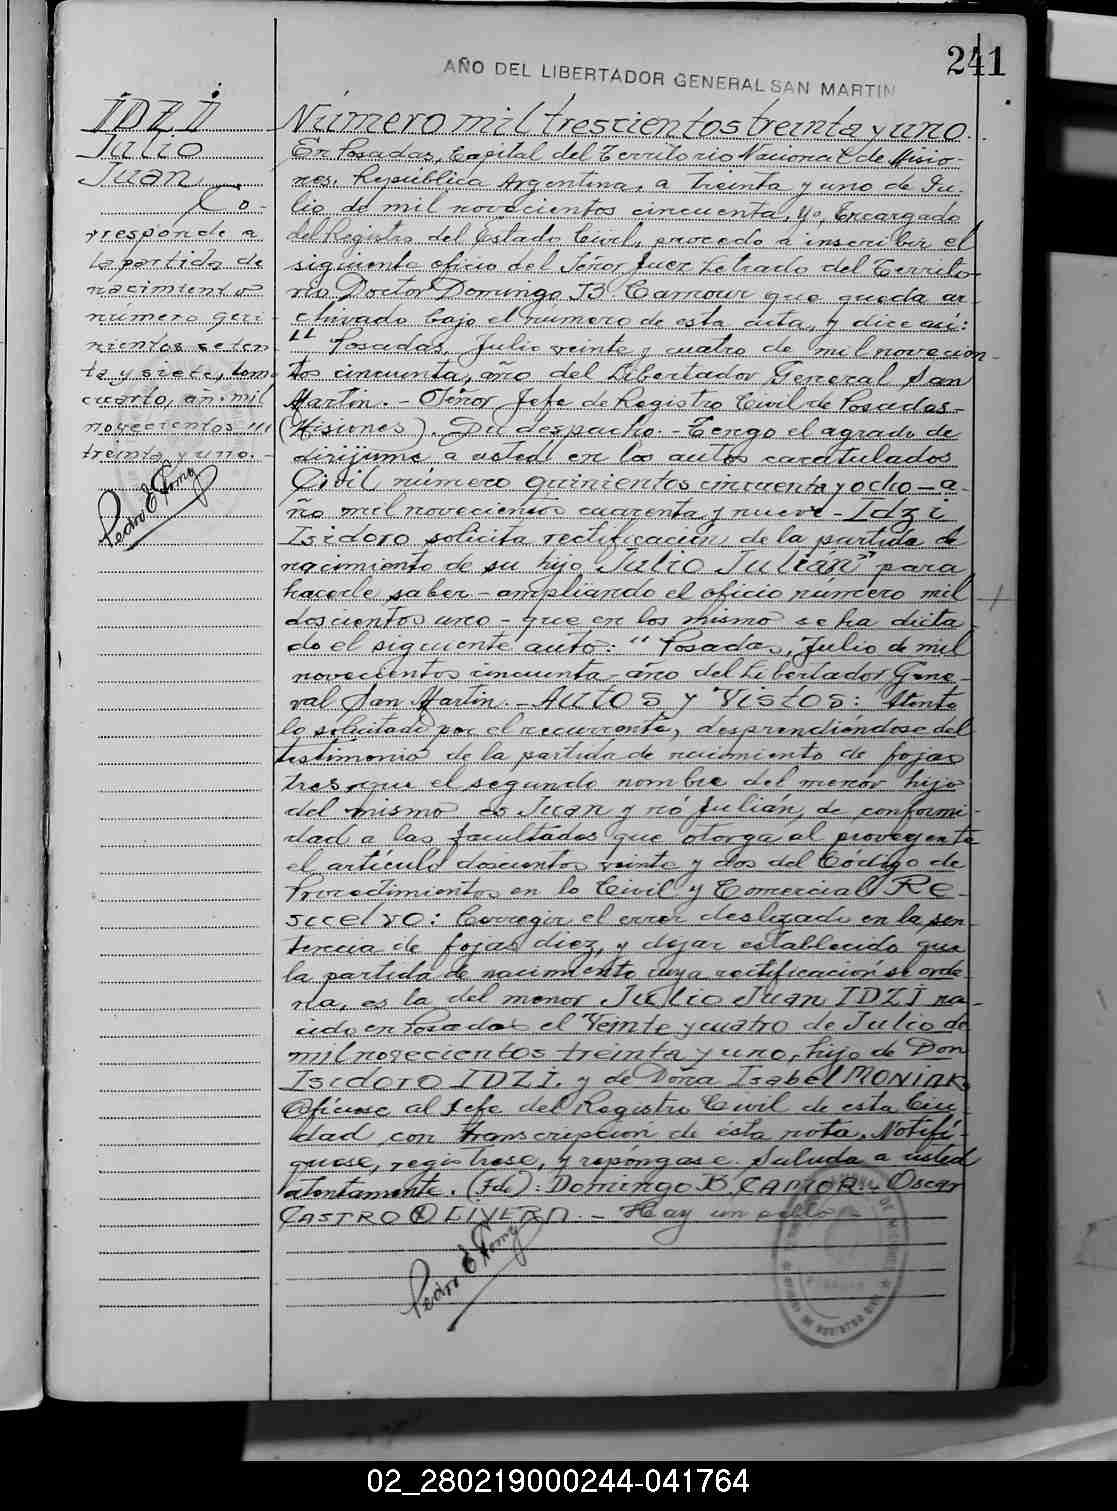 241
AÑO DEL LIBERTADOR GENERAL SAN MARTIN
IDZI
Julio
Juan
Co-
rresponde a
la partida de
nacimiento
número qui-
nientos seten-
ta y siete, tomo
cuarto, año mil
novecientos
treinta y uno.-
Pedro E
Número mil trescientos treinta y uno.
En Posadas, Capital del Territorio Nacional de Misio-
nes, República Argentina, a treinta y uno de Ju-
lio de mil novecientos cincuenta, Yo, Encargado
del Registro del Estado Civil, procedo a inscribir el
siguiente oficio del Señor Juez Letrado del Territo-
rio Doctor Domingo B. Camour que queda ar-
chivado bajo el número de esta acta, y dice así:
" Posadas, Julio veinte y cuatro de mil novecien-
tos cincuenta, año del Libertador General San
Martin.- Señor Jefe de Registro Civil de Posadas-
(Misiones). Su despacho.- Tengo el agrado de
dirijirme a usted en los autos caratulados
Civil número quinientos cincuenta y ocho-a-
ño mil novecientos cuarenta y nueve- Idzi
Isidoro solicita rectificación de la partida de
nacimiento de su hijo Julio Julián" para
hacerle saber-ampliando el oficio número mil
doscientos uno-que en los mismo se ha dicta-
do el siguiente auto: " Posadas, Julio de mil
novecientos cincuenta, año del Libertador Gene-
ral San Martin.- AUTOS y VISTOS: Atento
lo solicitado por el recurrente, desprendiéndose del
testimonio de la partida de nacimiento de fojas
tres que el segundo nombre del menor hijo
del mismo es Juan y nó Julián, de conformi-
dad a las facultades que otorga al proveyente
el artículo doscientos veinte y dos del Código de
Procedimientos en lo Civil y Comercial RE-
SUELVO: Corregir el error deslizado en la sen-
tencia de fojas diez, y dejar establecido que
la partida de nacimiento cuya rectificación se orde-
na, es la del menor Julio Juan IDZI na-
cido en Posadas el Veinte y cuatro de Julio de
mil novecientos treinta y uno, hijo de Don
Isidoro IDZI, y de Doña Isabel MONIAK.
Ofíciese al Jefe del Registro Civil de esta Ciu-
dad con transcripción de ésta nota. Notifí-
quese, regístrese, y repóngase. Saluda a usted
atentamente. (Fdo): Domingo B. CAMOR.- Oscar
CASTRO OLIVERA.- Hay un sello-
Pedro E
02_280219000244-041764